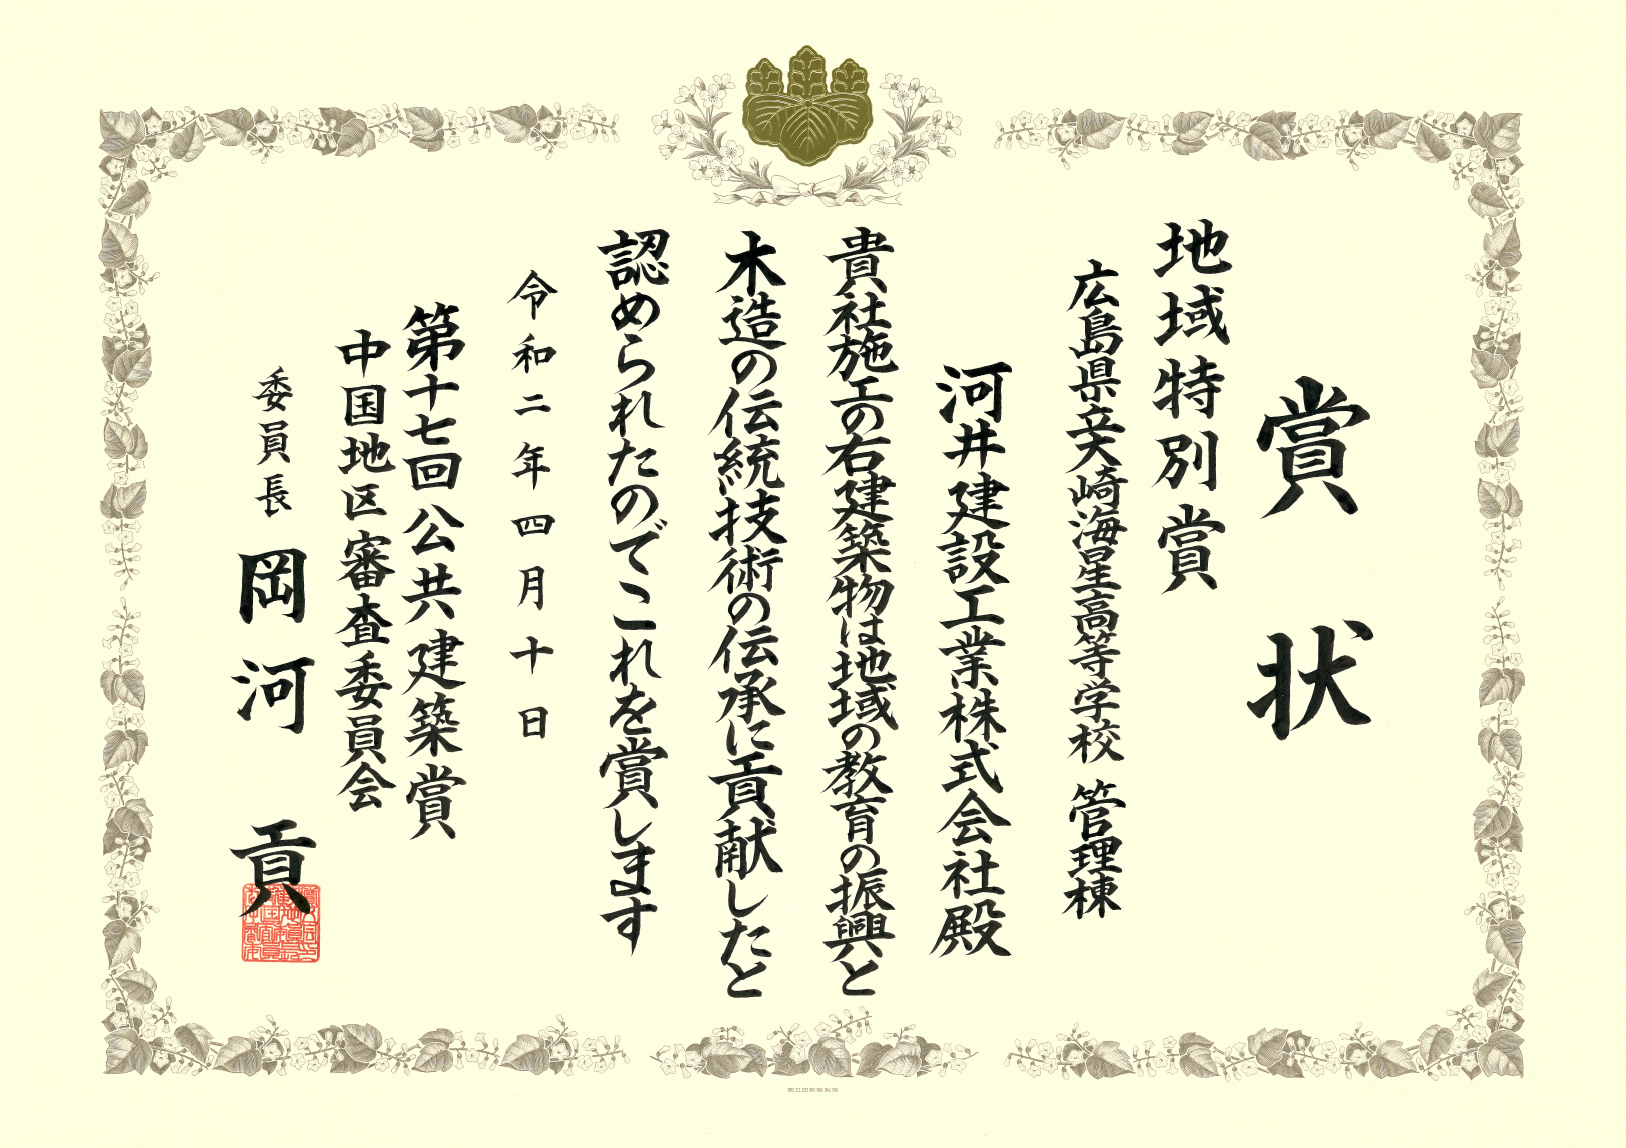 賞状
地域特別賞
広島県立大崎海星高等学校 管理棟
河井建設工業株式会社殿
貴社施工の右建築物は地域の教育の振興と
木造の伝統技術の伝承に貢献したと
認められたのでこれを賞します
令和二年四月十日
第十七回公共建築賞
中国地区審査委員会
委員長 岡河 貢